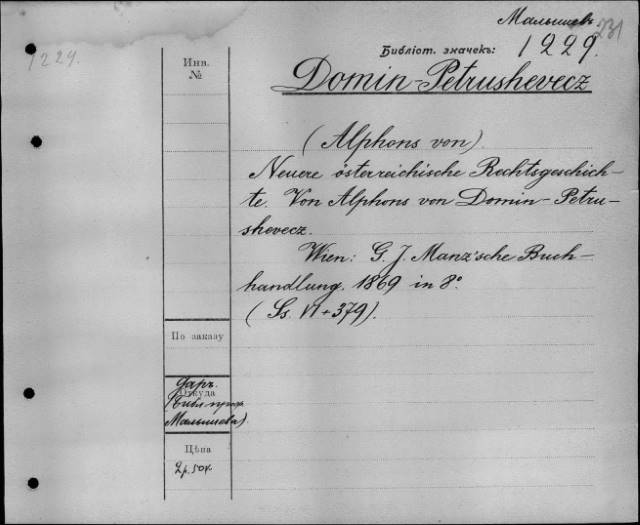 Малышев
231
1229.
Библіот. значекъ: 1229.
Инв.
№
Domin-Petrushevecz
(Alphons von).
Neuere österreichische Rechtsgeschich-
te. Von Alphons von Domin-Petru-
shevecz.
Wien: G. J. Manz'sche Buch-
handlung. 1869 in 8°
(Ss. VI + 379).
По заказу
Откуда
Даръ.
(Библ. проф.
Малышева).
Цѣна
2 р. 50 к.